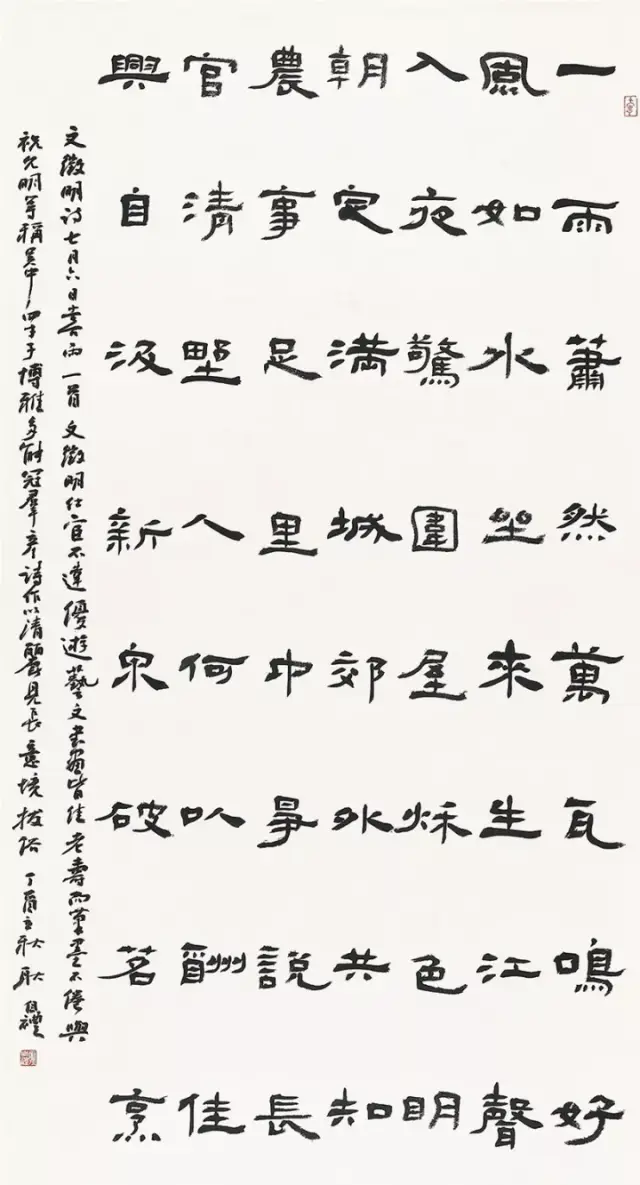 一雨蕭然萬瓦鳴好
風如水坐來生江聲
入夜驚圍屋秋色明
朝定滿城郊外共知
農事足里巾爭說長
官清野人何以酬佳
興自汲新泉破茗烹
文徵明詩七月六日喜雨一首文徵明仕宦不達優遊藝文書畫皆佳老壽而筆墨不倦與
祝允明等稱吳中四才子博雅多能冠羣詩作以清麗見長意境拔俗丁酉立秋耿自禮